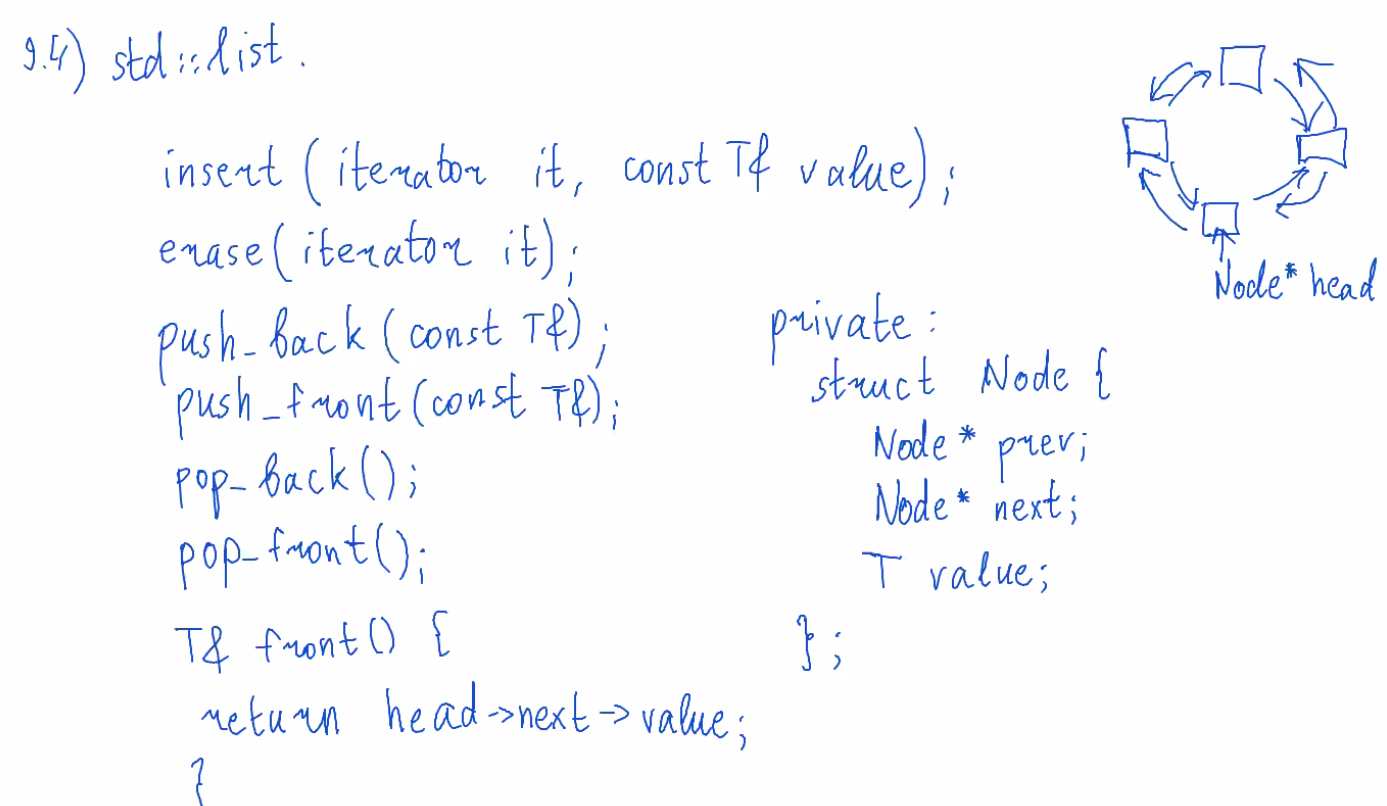 9.4) std::list.
insert (iterator it, const T& value);
erase(iterator it);
push_back (const T&);
push_front(const T&);
pop_back();
pop_front();
T& front() {
return head->next->value;
}
Node* head
private:
struct Node {
Node* prev;
Node* next;
T value;
};